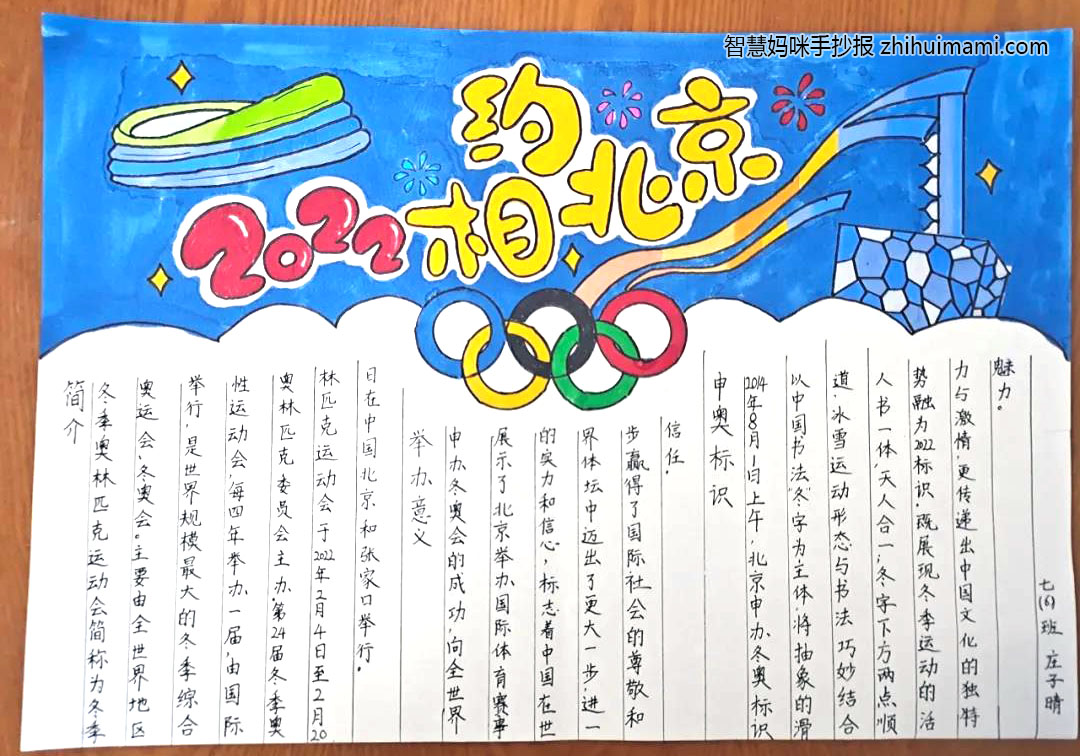 智慧妈咪手抄报 zhihuimami.com
2022相约北京
简介
冬季奥林匹克运动会简称为冬季
奥运会、冬奥会。主要由全世界地区
举行,是世界规模最大的冬季综合
性运动会,每四年举办一届,由国际
奥林匹克委员会主办。第24届冬季奥
林匹克运动会于2022年2月4日至2月20
日在中国北京和张家口举行。
举办意义
申办冬奥会的成功,向全世界
展示了北京举办国际体育赛事
的实力和信心,标志着中国在世
界体坛中迈出了更大一步,进一
步赢得了国际社会的尊敬和
信任.
申奥标识
2014年8月1日上午,北京申办冬奥标识
以中国书法冬字为主体,将抽象的滑
道、冰雪运动形态与书法巧妙结合
人书一体,天人合一;冬字下方两点顺
势融为2022标识,既展现冬季运动的活
力与激情,更传递出中国文化的独特
魅力。
七(6)班 庄子晴